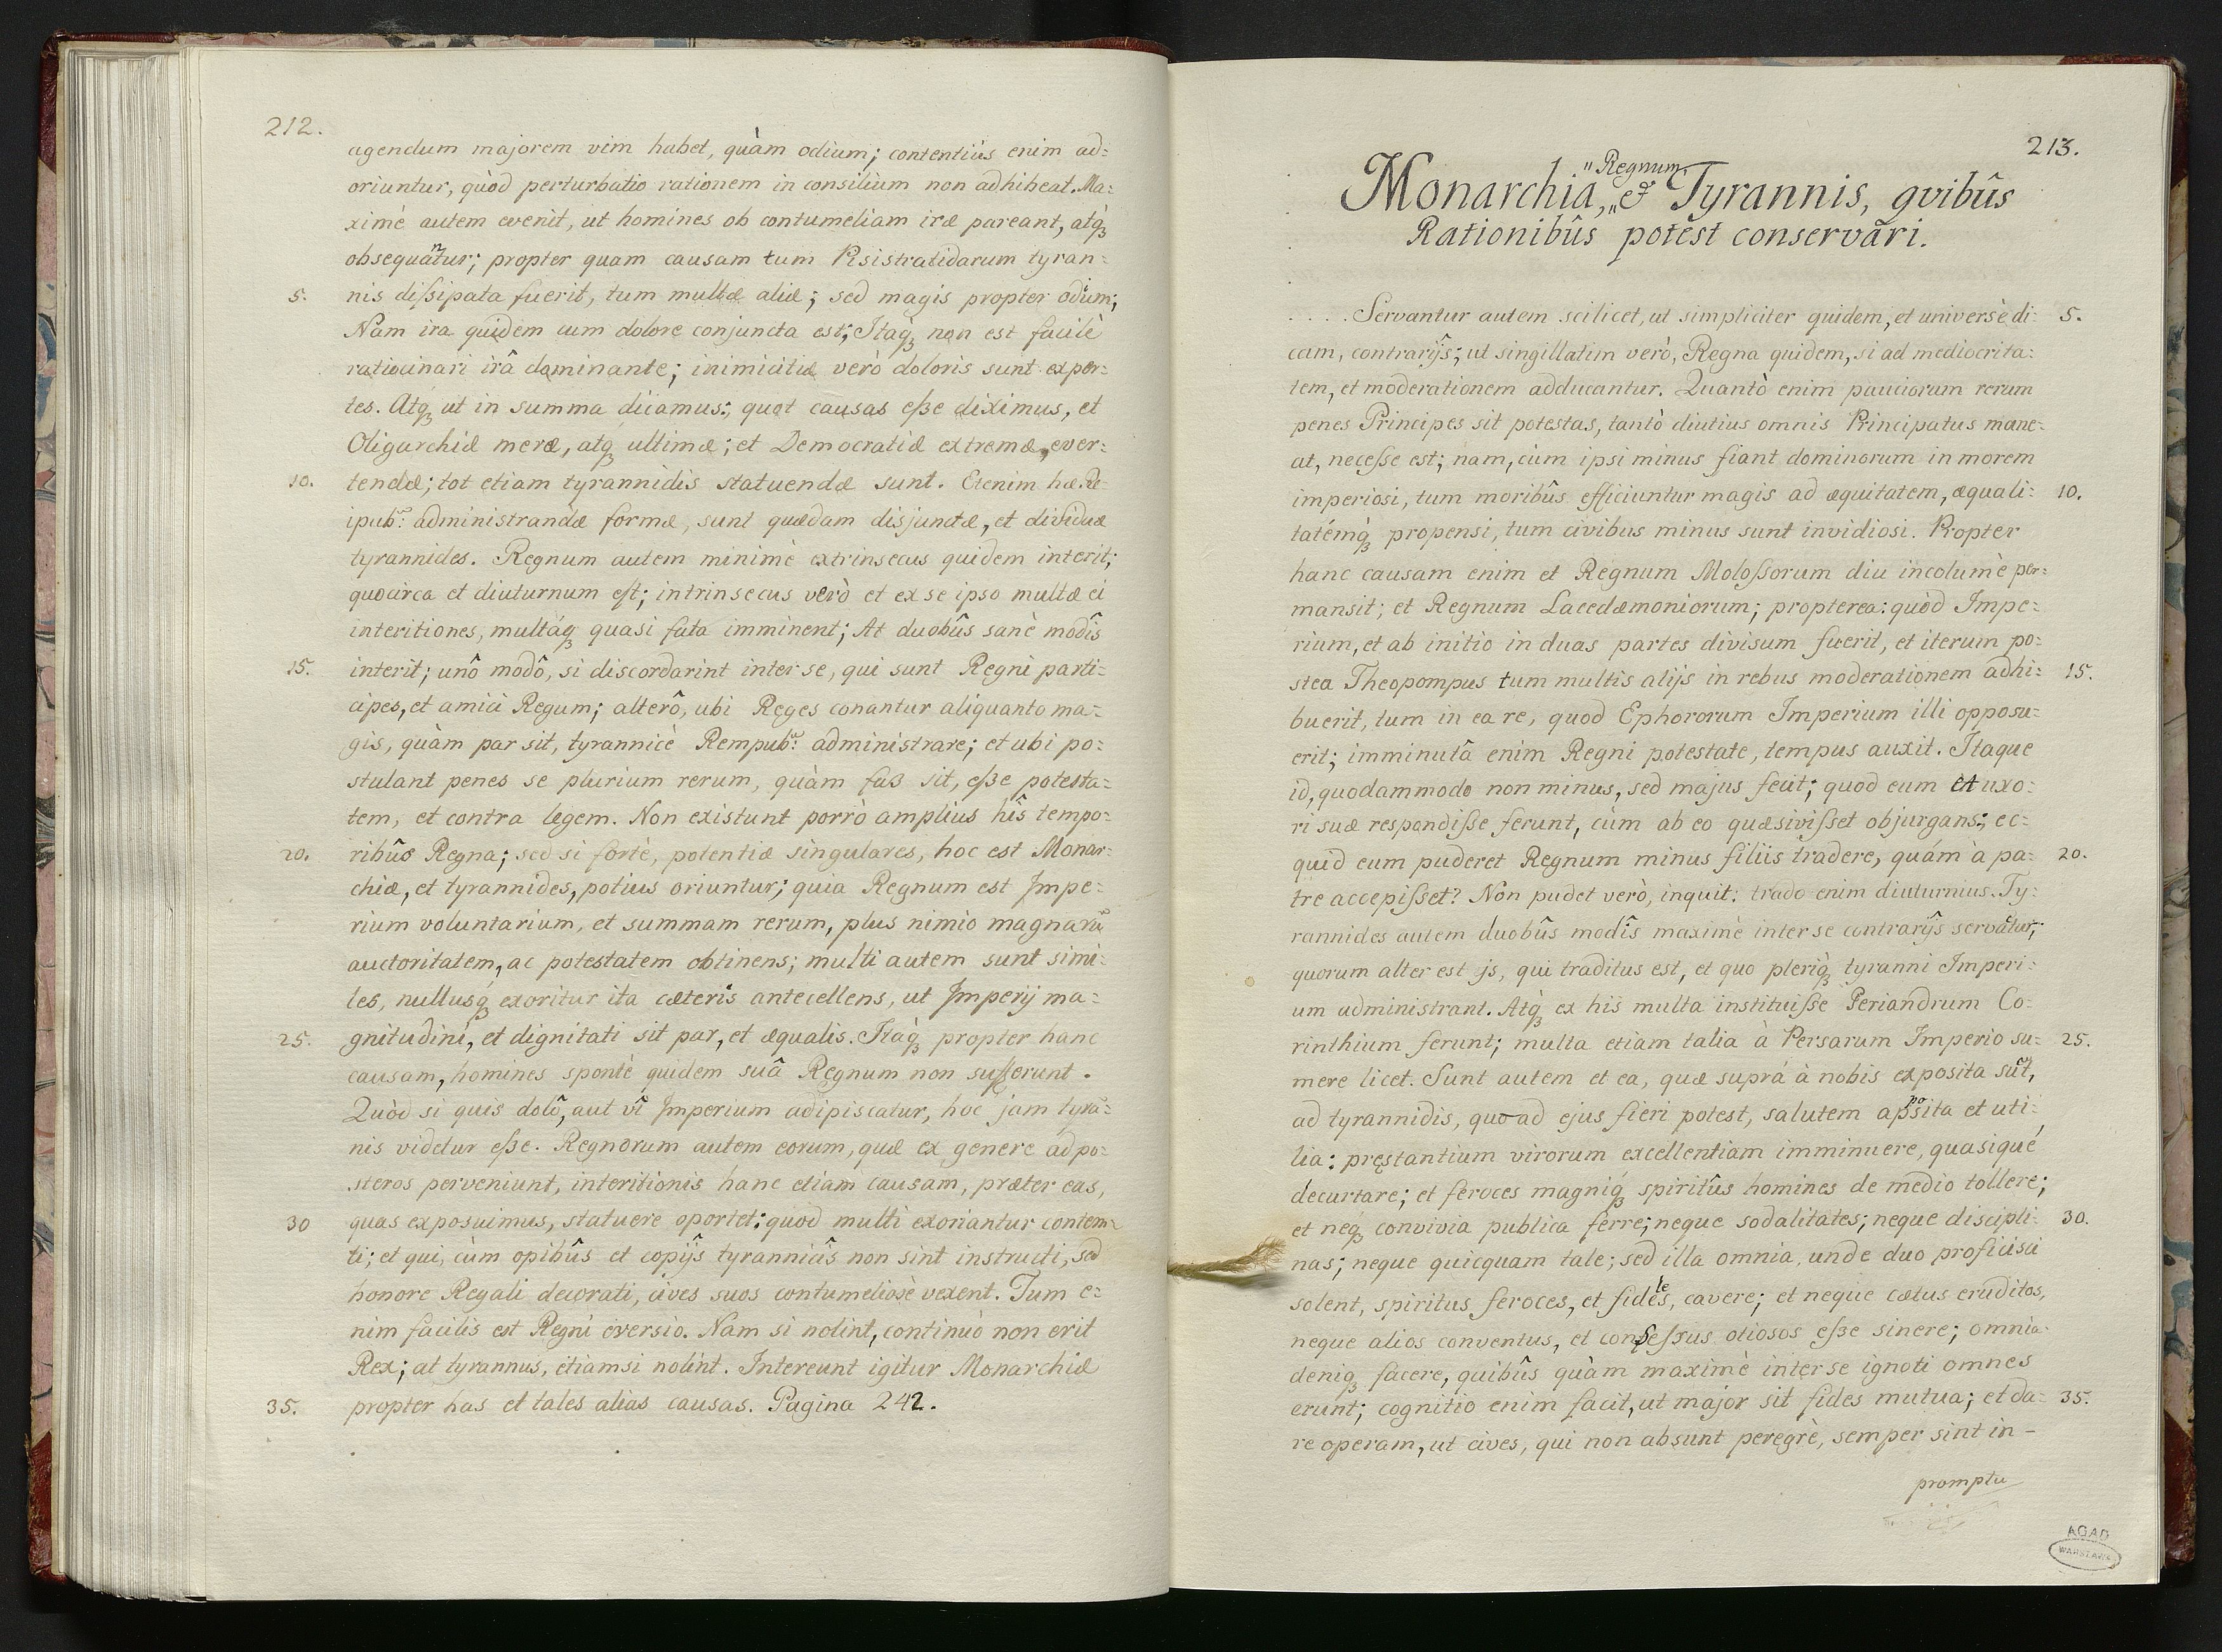 212.
agendum majorem vim habet, quàm odium; contentiùs enim ad:
oriuntur, quòd perturbatio rationem in consilium non adhibeat. Ma:
ximè autem evenit, ut homines ob contumeliam iræ pareant, atq́ꝫ
obsequãntur; propter quam causam tum Pisistratidarum tyran:
5. nis diſsipata fuerit, tum multæ aliæ; sed magis propter odium;
Nam ira quidem cum dolore conjuncta est; Itaq́ꝫ non est facilè
ratiocinari irâ dominante; inimicitiæ verò doloris sunt exper:
tes. Atq́ꝫ ut in summa dicamus; quot causas eſse diximus, et
Oligarchiæ meræ, atq́ꝫ ultimæ; et Democratiæ extremæ, ever:
10. tendæ; tot etiam tyrannidis statuendæ sunt. Etenim hæ Re:
ipub: administrandæ formæ, sunt quædam disjunctæ, et dividuæ
tyrannides. Regnum autem minimè extrinsecus quidem interit;
quocirca et diuturnum eſt; intrinsecus verò et ex se ipso multæ ei
interitiones, multáqꝫ quasi fata imminent; At duobûs sanè modîs
15. interit; unô modô, si discordarint inter se, qui sunt Regni parti:
cipes, et amici Regum; alterô, ubi Reges conantur aliquanto ma:
gis, quàm par sit, tyrannicè Rempub: administrare; et ubi po:
stulant penes se plurium rerum, quàm fas sit, eſse potesta:
tem, et contra legem. Non existunt porrò amplius hîs tempo:
20. ribûs Regna; sed si fortè, potentiæ singulares, hoc est Monar:
chiæ, et tyrannides, potius oriuntur; quia Regnum est Impe:
rium voluntarium, et summam rerum, plus nimiò magnarũ
auctoritatem, ac potestatem obtinens; multi autem sunt simi:
les, nullusq́ꝫ exoritur ita cæteris antecellens, ut Imperij ma:
25. gnitudini, et dignitati sit par, et æqualis. Itaq́ꝫ propter hanc
causam, homines spontè quidem suâ Regnum non sufferunt.
Quòd si quis dolô, aut vî Imperium adipiscatur, hoc jam tyrã:
nis videtur eſse. Regnorum autem eorum, quæ ex genere ad po:
steros perveniunt, interitionis hanc etiam causam, præter eas,
30 quas exposuimus, statuere oportet; quod multi exoriantur contem:
ti; et qui, cùm opibûs et copijs tyrannicîs non sint instructi, sed
honore Regali decorati, cives suos contumeliosè vexent. Tum e:
nim facilis est Regni eversio. Nam si nolint, continuò non erit
Rex; at tyrannus, etiamsi nolint. Intereunt igitur Monarchiæ
35. propter has et tales alias causas. Pagina 242.
213.
"Regnum
Monarchia," & Tyrannis, qvibûs
Rationibûs potest conservari.
. . . . Servantur autem scilicet, ut simpliciter quidem, et universè di: 5.
cam, contrarijs; ut singillatim verò, Regna quidem, si ad mediocrita:
tem, et moderationem adducantur. Quantò enim pauciorum rerum
penes Principes sit potestas, tantò diutius omnis Principatus mane:
at, neceſse est; nam, cùm ipsi minus fiant dominorum in morem
imperiosi, tum moribûs efficiuntur magis ad æquitatem, æquali: 10.
tatémq́ꝫ propensi, tum civibus minus sunt invidiosi. Propter
hanc causam enim et Regnum Moloſsorum diu incolumè per:
mansit; et Regnum Lacedæmoniorum; propterea: quòd Impe:
rium, et ab initio in duas partes divisum fuerit, et iterum po:
stea Theopompus tum multis alijs in rebus moderationem adhi: 15.
buerit, tum in ea re, quod Ephororum Imperium illi opposu:
erit; imminutâ enim Regni potestate, tempus auxit. Itaque
id, quodammodo non minus, sed majus fecit; quod eum et uxo:
ri suæ respondiſse ferunt, cùm ab eo quæsiviſset objurgans; ec:
quid eum puderet Regnum minus filiis tradere, quám à pa: 20.
tre accepiſset? Non pudet verò, inquit: trado enim diuturnius. Ty:
rannides autem duobûs modîs maximè inter se contrarijs servãtur;
quorum alter est js, qui traditus est, et quo pleriq́ꝫ tyranni Imperi:
um administrant. Atq́ꝫ ex his multa instituiſse Periandrum Co:
rinthium ferunt; multa etiam talia à Persarum Imperio su: 25.
mere licet. Sunt autem et ea, quæ suprà à nobis exposita sũt,
ad tyrannidis, quo ad ejus fieri potest, salutem apposita et uti:
lia: pręstantium virorum excellentiam imminuere, quasiqué
decurtare; et feroces magniq́ꝫ spiritûs homines de medio tollere;
et neq́ꝫ convivia publica ferre; neque sodalitates; neque discipli: 30.
nas; neque quicquam tale; sed illa omnia, unde duo proficisci
solent, spiritus feroces, et fides, cavere; et neque cœtus eruditos,
neque alios conventus, et conseſsus otiosos eſse sinere; omnia
deniq́ꝫ facere, quibûs quàm maximè inter se ignoti omnes
erunt; cognitio enim facit, ut major sit fides mutua; et da: 35.
re operam, ut cives, qui non absunt peregrè, semper sint in -
promptu
AGAD
WARSZAWA